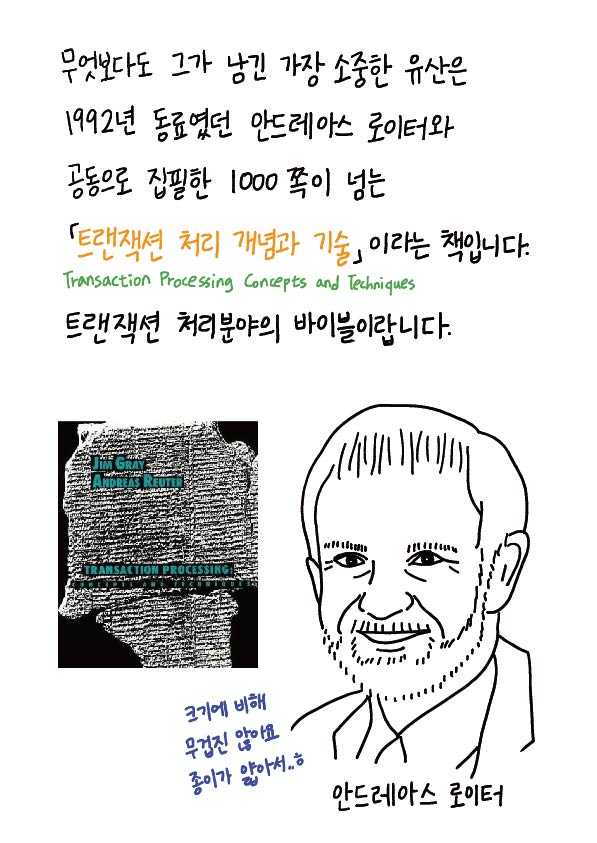 무엇보다도 그가 남긴 가장 소중한 유산은
1992년 동료였던 안드레아스 로이터와
공동으로 집필한 1000쪽이 넘는
「트랜잭션 처리 개념과 기술」이라는 책입니다.
Transaction Processing Concepts and Techniques
트랜잭션 처리분야의 바이블이랍니다.
JIM GRAY
ANDREAS REUTER
TRANSACTION PROCESSING:
CONCEPTS AND TECHNIQUES
크기에 비해
무겁진 않아요
종이가 얇아서..ㅎ
안드레아스 로이터